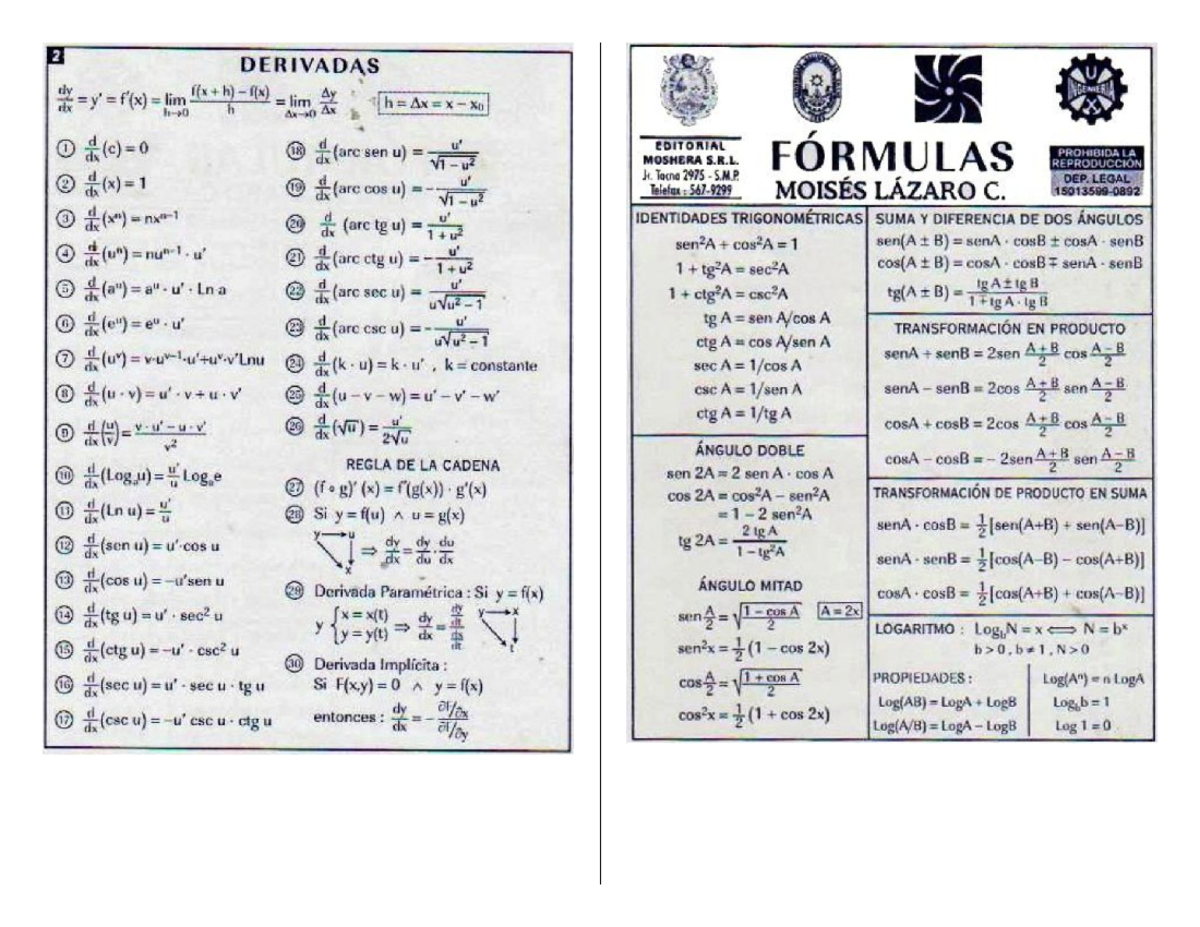 2
DERIVADAS
dy/dx = y' = f'(x) = lim h→0 f(x + h) − f(x)/h = lim Δx→0 Δy/Δx   h = Δx = x − x₀
① d/dx (c) = 0
② d/dx (x) = 1
③ d/dx (xⁿ) = nxⁿ⁻¹
④ d/dx (uⁿ) = nuⁿ⁻¹ · u'
⑤ d/dx (aᵘ) = aᵘ · u' · Ln a
⑥ d/dx (eᵘ) = eᵘ · u'
⑦ d/dx (uᵛ) = v·uᵛ⁻¹·u'+uᵛ·v'Lnu
⑧ d/dx (u · v) = u' · v + u · v'
⑨ d/dx (u/v) = v · u' − u · v'/v²
⑩ d/dx (Logₐu) = u'/u Logₐe
⑪ d/dx (Ln u) = u'/u
⑫ d/dx (sen u) = u'·cos u
⑬ d/dx (cos u) = −u'sen u
⑭ d/dx (tg u) = u' · sec² u
⑮ d/dx (ctg u) = −u' · csc² u
⑯ d/dx (sec u) = u' · sec u · tg u
⑰ d/dx (csc u) = −u' csc u · ctg u
⑱ d/dx (arc sen u) = u'/√(1 − u²)
⑲ d/dx (arc cos u) = − u'/√(1 − u²)
⑳ d/dx (arc tg u) = u'/1 + u²
㉑ d/dx (arc ctg u) = − u'/1 + u²
㉒ d/dx (arc sec u) = u'/u√(u² − 1)
㉓ d/dx (arc csc u) = − u'/u√(u² − 1)
㉔ d/dx (k · u) = k · u' , k = constante
㉕ d/dx (u − v − w) = u' − v' − w'
㉖ d/dx (√u) = u'/2√u
REGLA DE LA CADENA
㉗ (f ∘ g)' (x) = f'(g(x)) · g'(x)
㉘ Si y = f(u) ∧ u = g(x)
y u x ⇒ dy/dx = dy/du · du/dx
㉙ Derivada Paramétrica : Si y = f(x)
y { x = x(t) y = y(t) ⇒ dy/dx = dy/dt / dx/dt y x t
㉚ Derivada Implícita :
Si F(x,y) = 0 ∧ y = f(x)
entonces : dy/dx = − ∂f/∂x / ∂f/∂y
UNI
INGENIERIA
EDITORIAL
MOSHERA S.R.L.
Jr. Tacna 2975 - S.M.P.
Telefax : 567-9299
FÓRMULAS
MOISÉS LÁZARO C.
PROHIBIDA LA
REPRODUCCIÓN
DEP. LEGAL
15013599-0892
IDENTIDADES TRIGONOMÉTRICAS
sen²A + cos²A = 1
1 + tg²A = sec²A
1 + ctg²A = csc²A
tg A = sen A/cos A
ctg A = cos A/sen A
sec A = 1/cos A
csc A = 1/sen A
ctg A = 1/tg A
ÁNGULO DOBLE
sen 2A = 2 sen A · cos A
cos 2A = cos²A − sen²A
= 1 − 2 sen²A
tg 2A = 2 tg A/1 − tg²A
ÁNGULO MITAD
sen A/2 = √(1 − cos A/2)   A = 2x
sen²x = 1/2 (1 − cos 2x)
cos A/2 = √(1 + cos A/2)
cos²x = 1/2 (1 + cos 2x)
SUMA Y DIFERENCIA DE DOS ÁNGULOS
sen(A ± B) = senA · cosB ± cosA · senB
cos(A ± B) = cosA · cosB ∓ senA · senB
tg(A ± B) = tg A ± tg B/1 ∓ tg A · tg B
TRANSFORMACIÓN EN PRODUCTO
senA + senB = 2sen A + B/2 cos A − B/2
senA − senB = 2cos A + B/2 sen A − B/2
cosA + cosB = 2cos A + B/2 cos A − B/2
cosA − cosB = − 2sen A + B/2 sen A − B/2
TRANSFORMACIÓN DE PRODUCTO EN SUMA
senA · cosB = 1/2 [sen(A+B) + sen(A−B)]
senA · senB = 1/2 [cos(A−B) − cos(A+B)]
cosA · cosB = 1/2 [cos(A+B) + cos(A−B)]
LOGARITMO : Log_b N = x ⟺ N = bˣ
b > 0 , b ≠ 1 , N > 0
PROPIEDADES :
Log(AB) = LogA + LogB
Log(A/B) = LogA − LogB
Log(Aⁿ) = n LogA
Log_b b = 1
Log 1 = 0